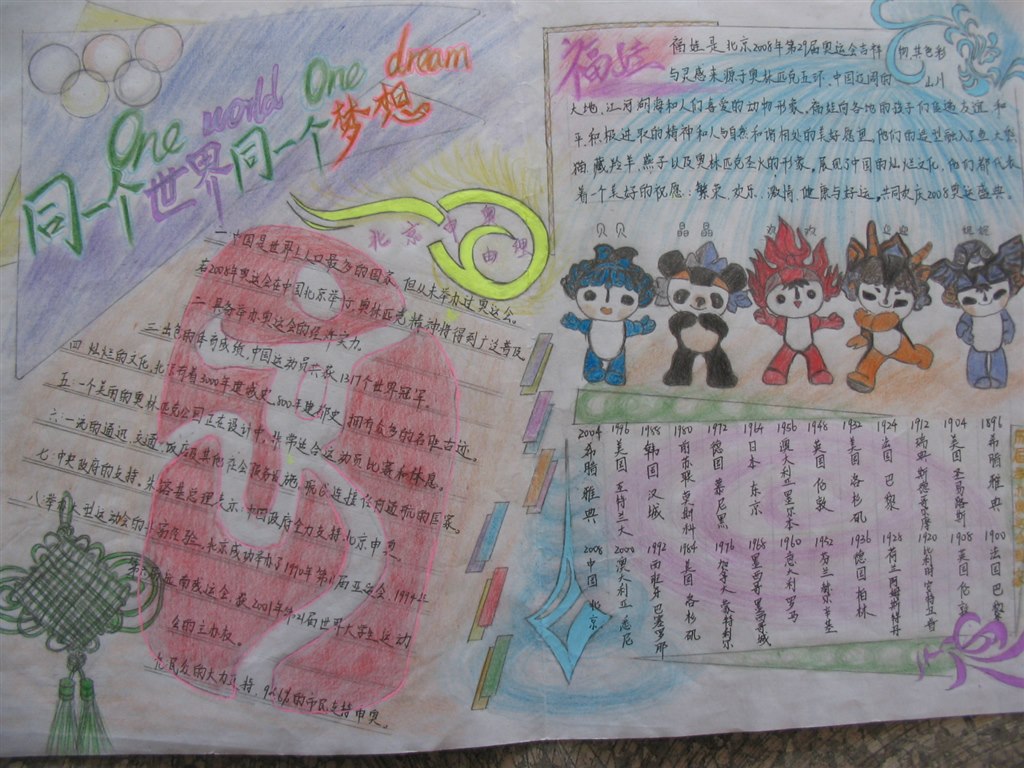 One world One dream
同一个世界同一个梦想
北京申奥
由理
一.中国是世界上人口最多的国家,但从未举办过奥运会。
若2008年奥运会在中国北京举行,奥林匹克精神将得到广泛普及
二.具备举办奥运会的经济实力。
三.出色的体育成绩,中国运动员共获1317个世界冠军。
四.灿烂的文化,北京有着3000年建城史,800年建都史,拥有众多的名胜古迹。
五.一个美丽的奥林匹克公园正在设计中,非常适合运动员比赛和休息。
六.一流的通迅、交通、饭店及其他社会服务设施,
七.中央政府的支持,朱镕基总理表示,中国政府全力支持北京申奥
北京成功举办了1990年第11届亚运会,1994年
南残运会,获2001年第21届世界大学生运动
会的主办权。
民众的大力支持,94.6%的市民支持申奥
福娃
福娃是北京2008年第29届奥运会吉祥物,其色彩
与灵感来源于奥林匹克五环、中国辽阔的山川
大地、江河湖海和人们喜爱的动物形象。福娃向各地的孩子们传递友谊、和
平、积极进取的精神和人与自然和谐相处的美好愿望。他们的造型融入了鱼、大熊
猫、藏羚羊、燕子以及奥林匹克圣火的形象,展现了中国的灿烂文化,他们都代表
着一个美好的祝愿:繁荣、欢乐、激情、健康与好运,共同欢庆2008奥运盛典。
贝贝 晶晶 欢欢 迎迎 妮妮
1896 希腊 雅典
1904 美国 圣易路斯
1912 瑞典 斯德哥尔摩
1924 法国 巴黎
1932 美国 洛杉矶
1948 英国 伯敦
1956 澳大利亚 墨尔本
1964 日本 东京
1972 德国 慕尼黑
1980 前苏联 莫斯科
1988 韩国 汉城
1996 美国 亚特兰大
2004 希腊 雅典
1900 法国 巴黎
1908 英国 伦敦
1920 比利时 安特卫普
1928 荷兰 阿姆斯特丹
1936 德国 柏林
1952 芬兰 赫尔辛基
1960 意大利 罗马
1968 墨西哥 墨西哥城
1976 加拿大 蒙特利尔
1984 美国 洛杉矶
1992 西班牙 巴塞罗那
2000 澳大利亚 悉尼
2008 中国 北京